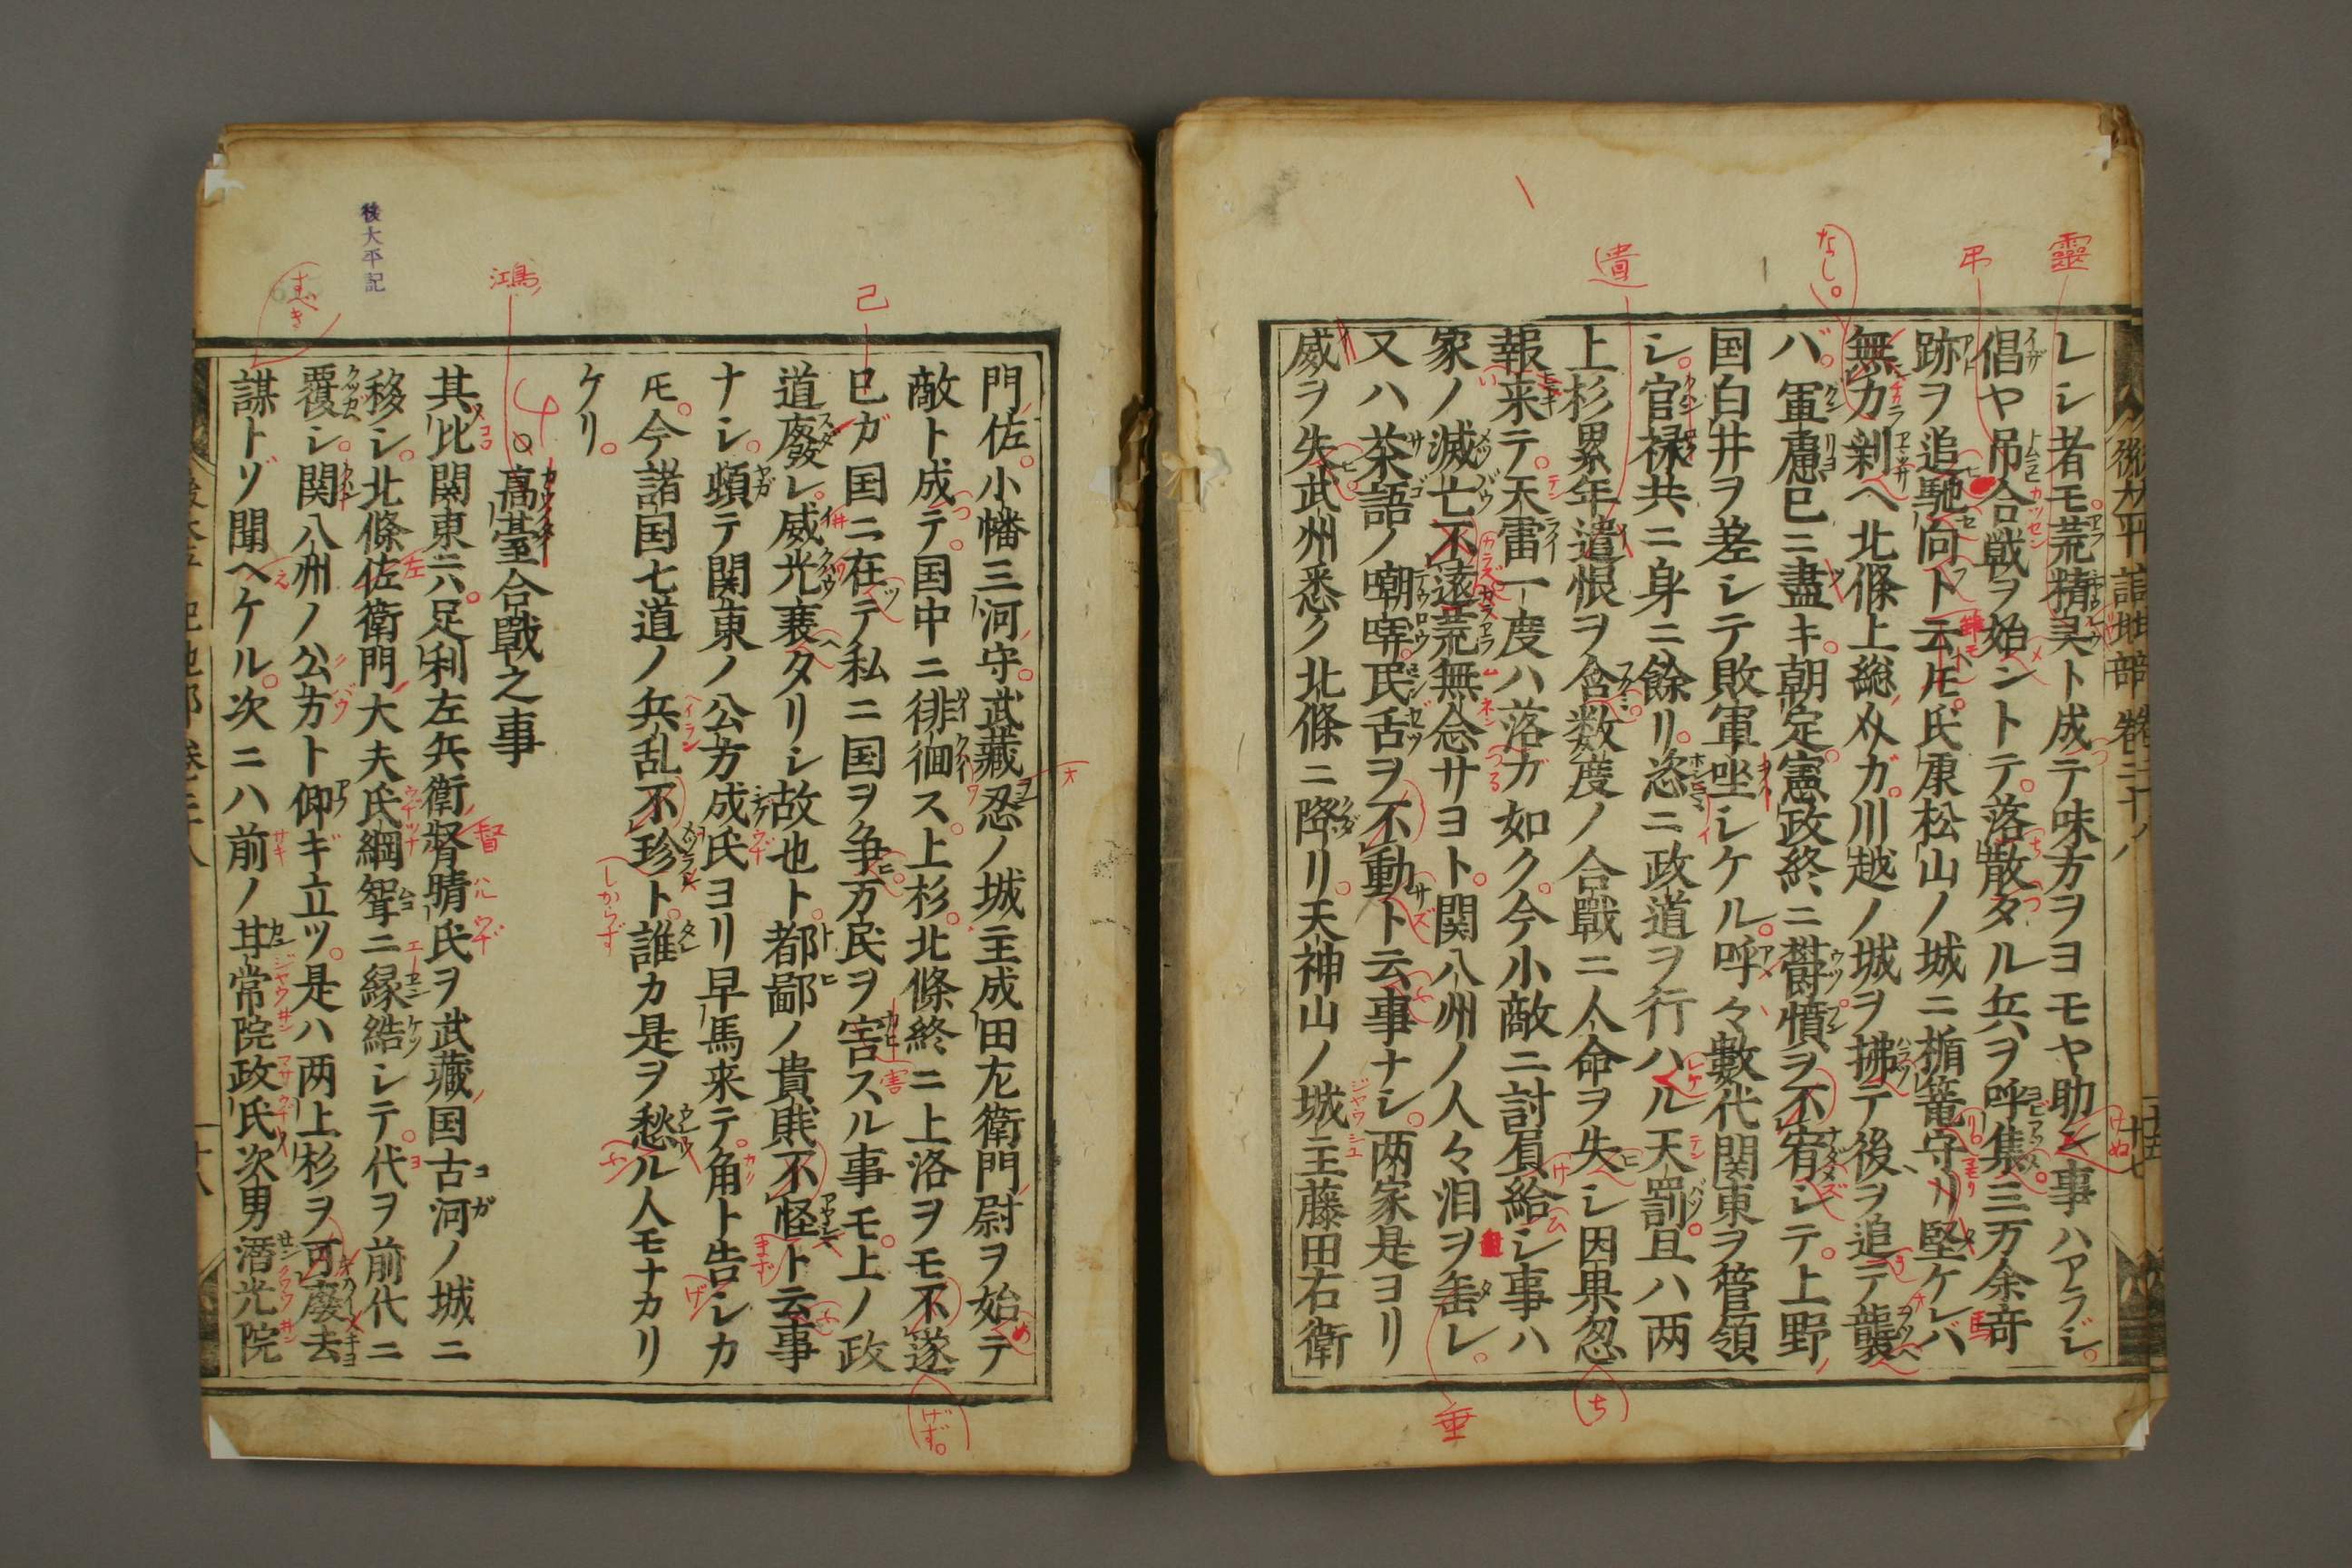 レシ者モ荒精灵ト成テ味方ヲヨモヤ助ン事ハアラジ
倡ヤ吊合戦ヲ始ントテ落散タル兵ヲ呼集三万余奇
跡ヲ追馳向ト云𪜈氏康松山ノ城ニ楯篭守リ堅ケレバ
無力剰ヘ北條上総介ガ川越ノ城ヲ拂テ後ヲ追テ襲
バ軍慮已ニ盡キ朝定憲政終ニ欝憤ヲ不宥シテ上野
国白井ヲ差シテ敗軍㘴シケル呼々數代関東ヲ管領
シ官禄共ニ身ニ餘リ恣ニ政道ヲ行ハル天罰且ハ两
上杉累年遺恨ヲ含数度ノ合戰ニ人命ヲ失シ因果忽
報来テ天雷一度ハ落ガ如ク今小敵ニ討負給シ事ハ
家ノ滅亡不遠荒無念サヨト関八州ノ人々泪ヲ垂レ
又ハ茶語ノ嘲哢民舌ヲ不動ト云事ナシ两家是ヨリ
威ヲ失武州悉ク北條ニ降リ天神山ノ城主藤田右衛
門佐小幡三河守武藏忍ノ城主成田左衛門尉ヲ始テ
敵ト成テ国中ニ徘徊ス上杉北條終ニ上洛ヲモ不遂
已ガ国ニ在テ私ニ国ヲ争万民ヲ害スル事モ上ノ政
道廢レ威光衰タリシ故也ト都鄙ノ貴賎不怪ト云事
ナシ頗テ関東ノ公方成氏ヨリ早馬来テ角ト告シカ
𪜈今諸国七道ノ兵乱不珍ト誰カ是ヲ愁ル人モナカリ
ケリ
○髙臺合戰之事
其比関東ニハ足利左兵衛督晴氏ヲ武藏国古河ノ城ニ
移シ北條佐衛門大夫氏綱聟ニ縁結シテ代ヲ前代ニ
覆シ関八州ノ公方ト仰ギ立ツ是ハ两上杉ヲ可廢去
謀トゾ聞ヘケル次ニハ前ノ甘常院政氏次男潛光院
後太平記地部 巻三十八
後大平記
靈
弔
なし。
遺
垂
ち
己
鴻
すべき
げず。